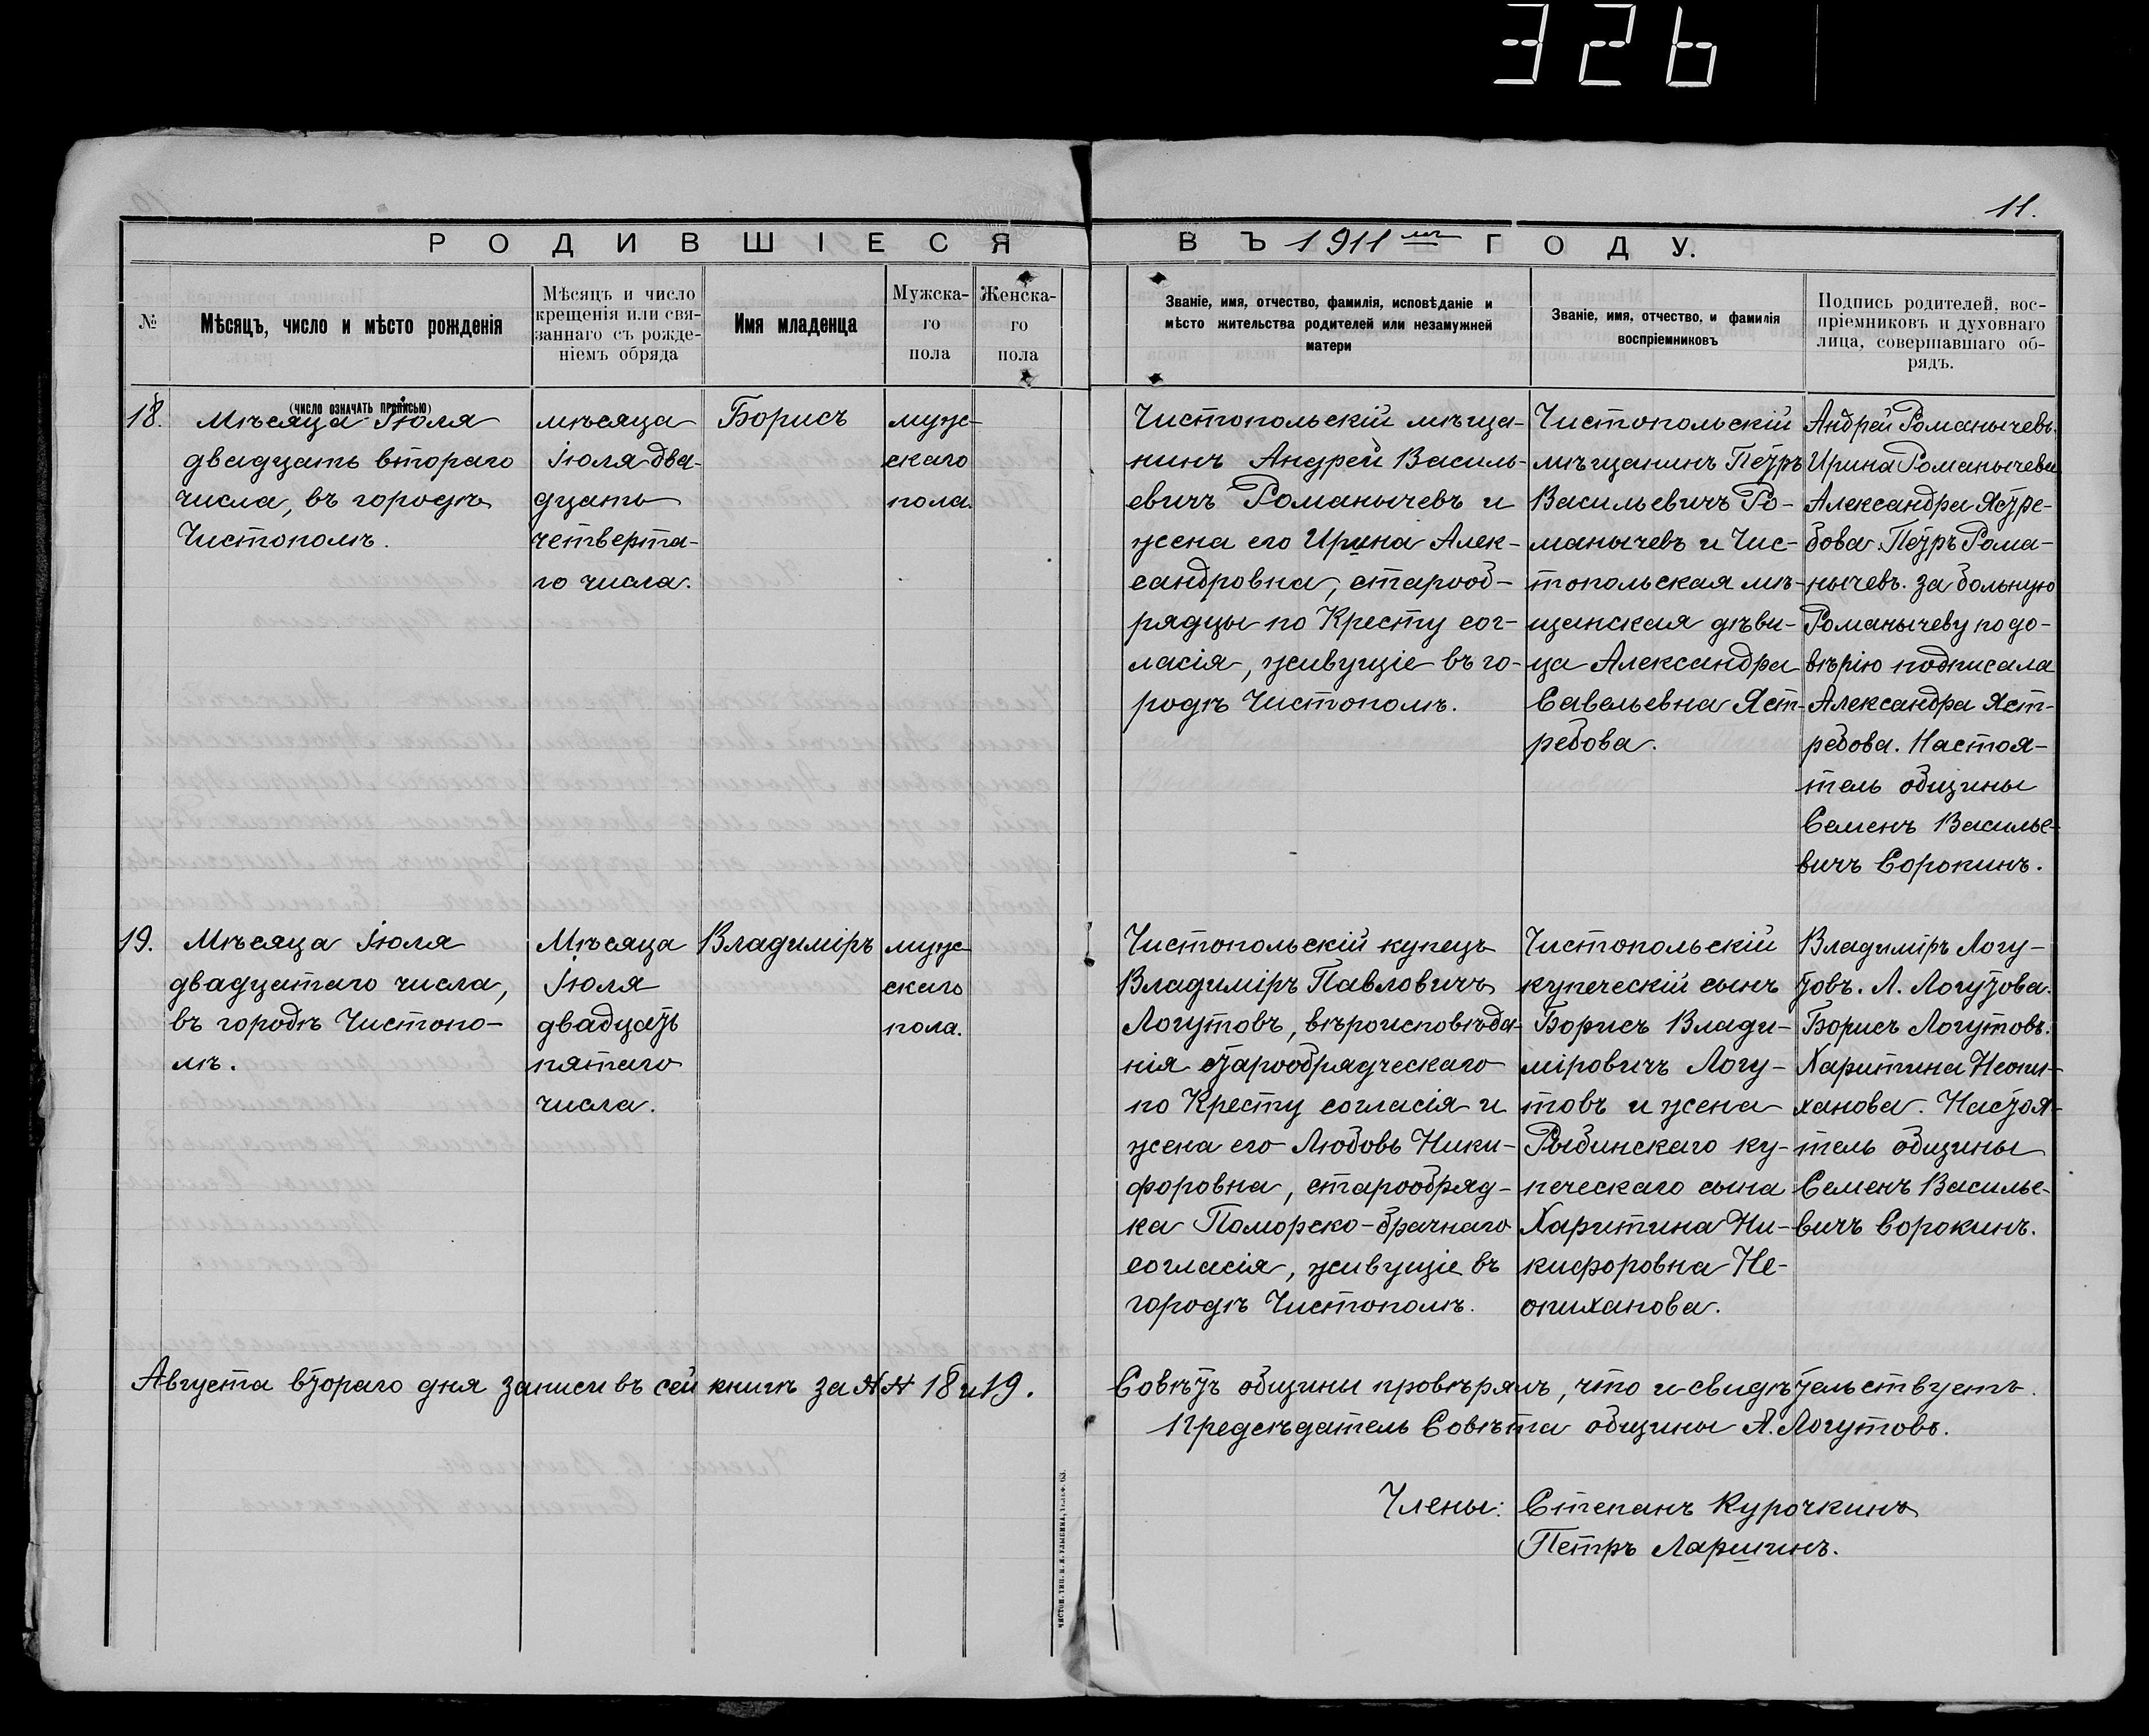 326
11.
РОДИВШІЕСЯ ВЪ 1911 мъ ГОДУ.
№
Мѣсяцъ, число и мѣсто рожденія
Мѣсяцъ и число
крещенія или свя-
заннаго съ рожде-
ніемъ обряда
Имя младенца
Мужска-
го
пола
Женска-
го
пола
Званіе, имя, отчество, фамилія, исповѣданіе и
мѣсто жительства родителей или незамужней
матери
Званіе, имя, отчество, и фамилія
воспріемниковъ
Подпись родителей, вос-
пріемниковъ и духовнаго
лица, совершавшаго об-
рядъ.
(число означать прописью)
18.
Мѣсяца Іюля
двадцать втораго
числа, въ городѣ
Чистополѣ.
мѣсяца
Іюля два-
дцать
четверта-
го числа.
Борисъ
муж-
скаго
пола.
Чистопольскій мѣща-
нинъ Андрей Василь-
евичъ Романычевъ и
жена его Ирина Алек-
сандровна, старооб-
рядцы по Кресту сог-
ласія, живущіе въ го-
родѣ Чистополѣ.
Чистопольскій
мѣщанинъ Петръ
Васильевичъ Ро-
манычевъ и Чис-
топольская мѣ-
щанская дѣви-
ца Александра
Савельевна Яст-
ребова.
Андрей Романычевъ.
Ирина Романычева
Александра Ястре-
бова. Петръ Рома-
нычевъ. за больную
Романычеву по до-
вѣрію подписала
Александра Яст-
ребова. Настоя-
тель общины
Семенъ Василье-
вичъ Сорокинъ.
19.
Мѣсяца Іюля
двадцатаго числа,
въ городѣ Чистопо-
лѣ.
Мѣсяца
Іюля
двадцать
пятаго
числа.
Владиміръ
муж-
скаго
пола.
Чистопольскій купецъ
Владиміръ Павловичъ
Логутовъ, вѣроисповѣда-
нія старообрядческаго
по Кресту согласія и
жена его Любовь Ники-
форовна, старообряд-
ка Поморско-брачнаго
согласія, живущіе въ
городѣ Чистополѣ.
Чистопольскій
купеческій сынъ
Борисъ Влади-
міровичъ Логу-
товъ и жена
Рыбинскаго ку-
печескаго сына
Харитина Ни-
кифоровна Не-
опиханова.
Владиміръ Логу-
товъ. Л. Логутова.
Борисъ Логутовъ.
Харитина Неопи-
ханова. Настоя-
тель общины
Семенъ Василье-
вичъ Сорокинъ.
Августа втораго дня записи въ сей книгѣ за №№ 18 и 19. Совѣтъ общины провѣрялъ, что и свидѣтельствуетъ.
Предсѣдатель Совѣта общины А. Логутовъ.
Члены: Степанъ Курочкинъ
Петръ Ларшинъ.